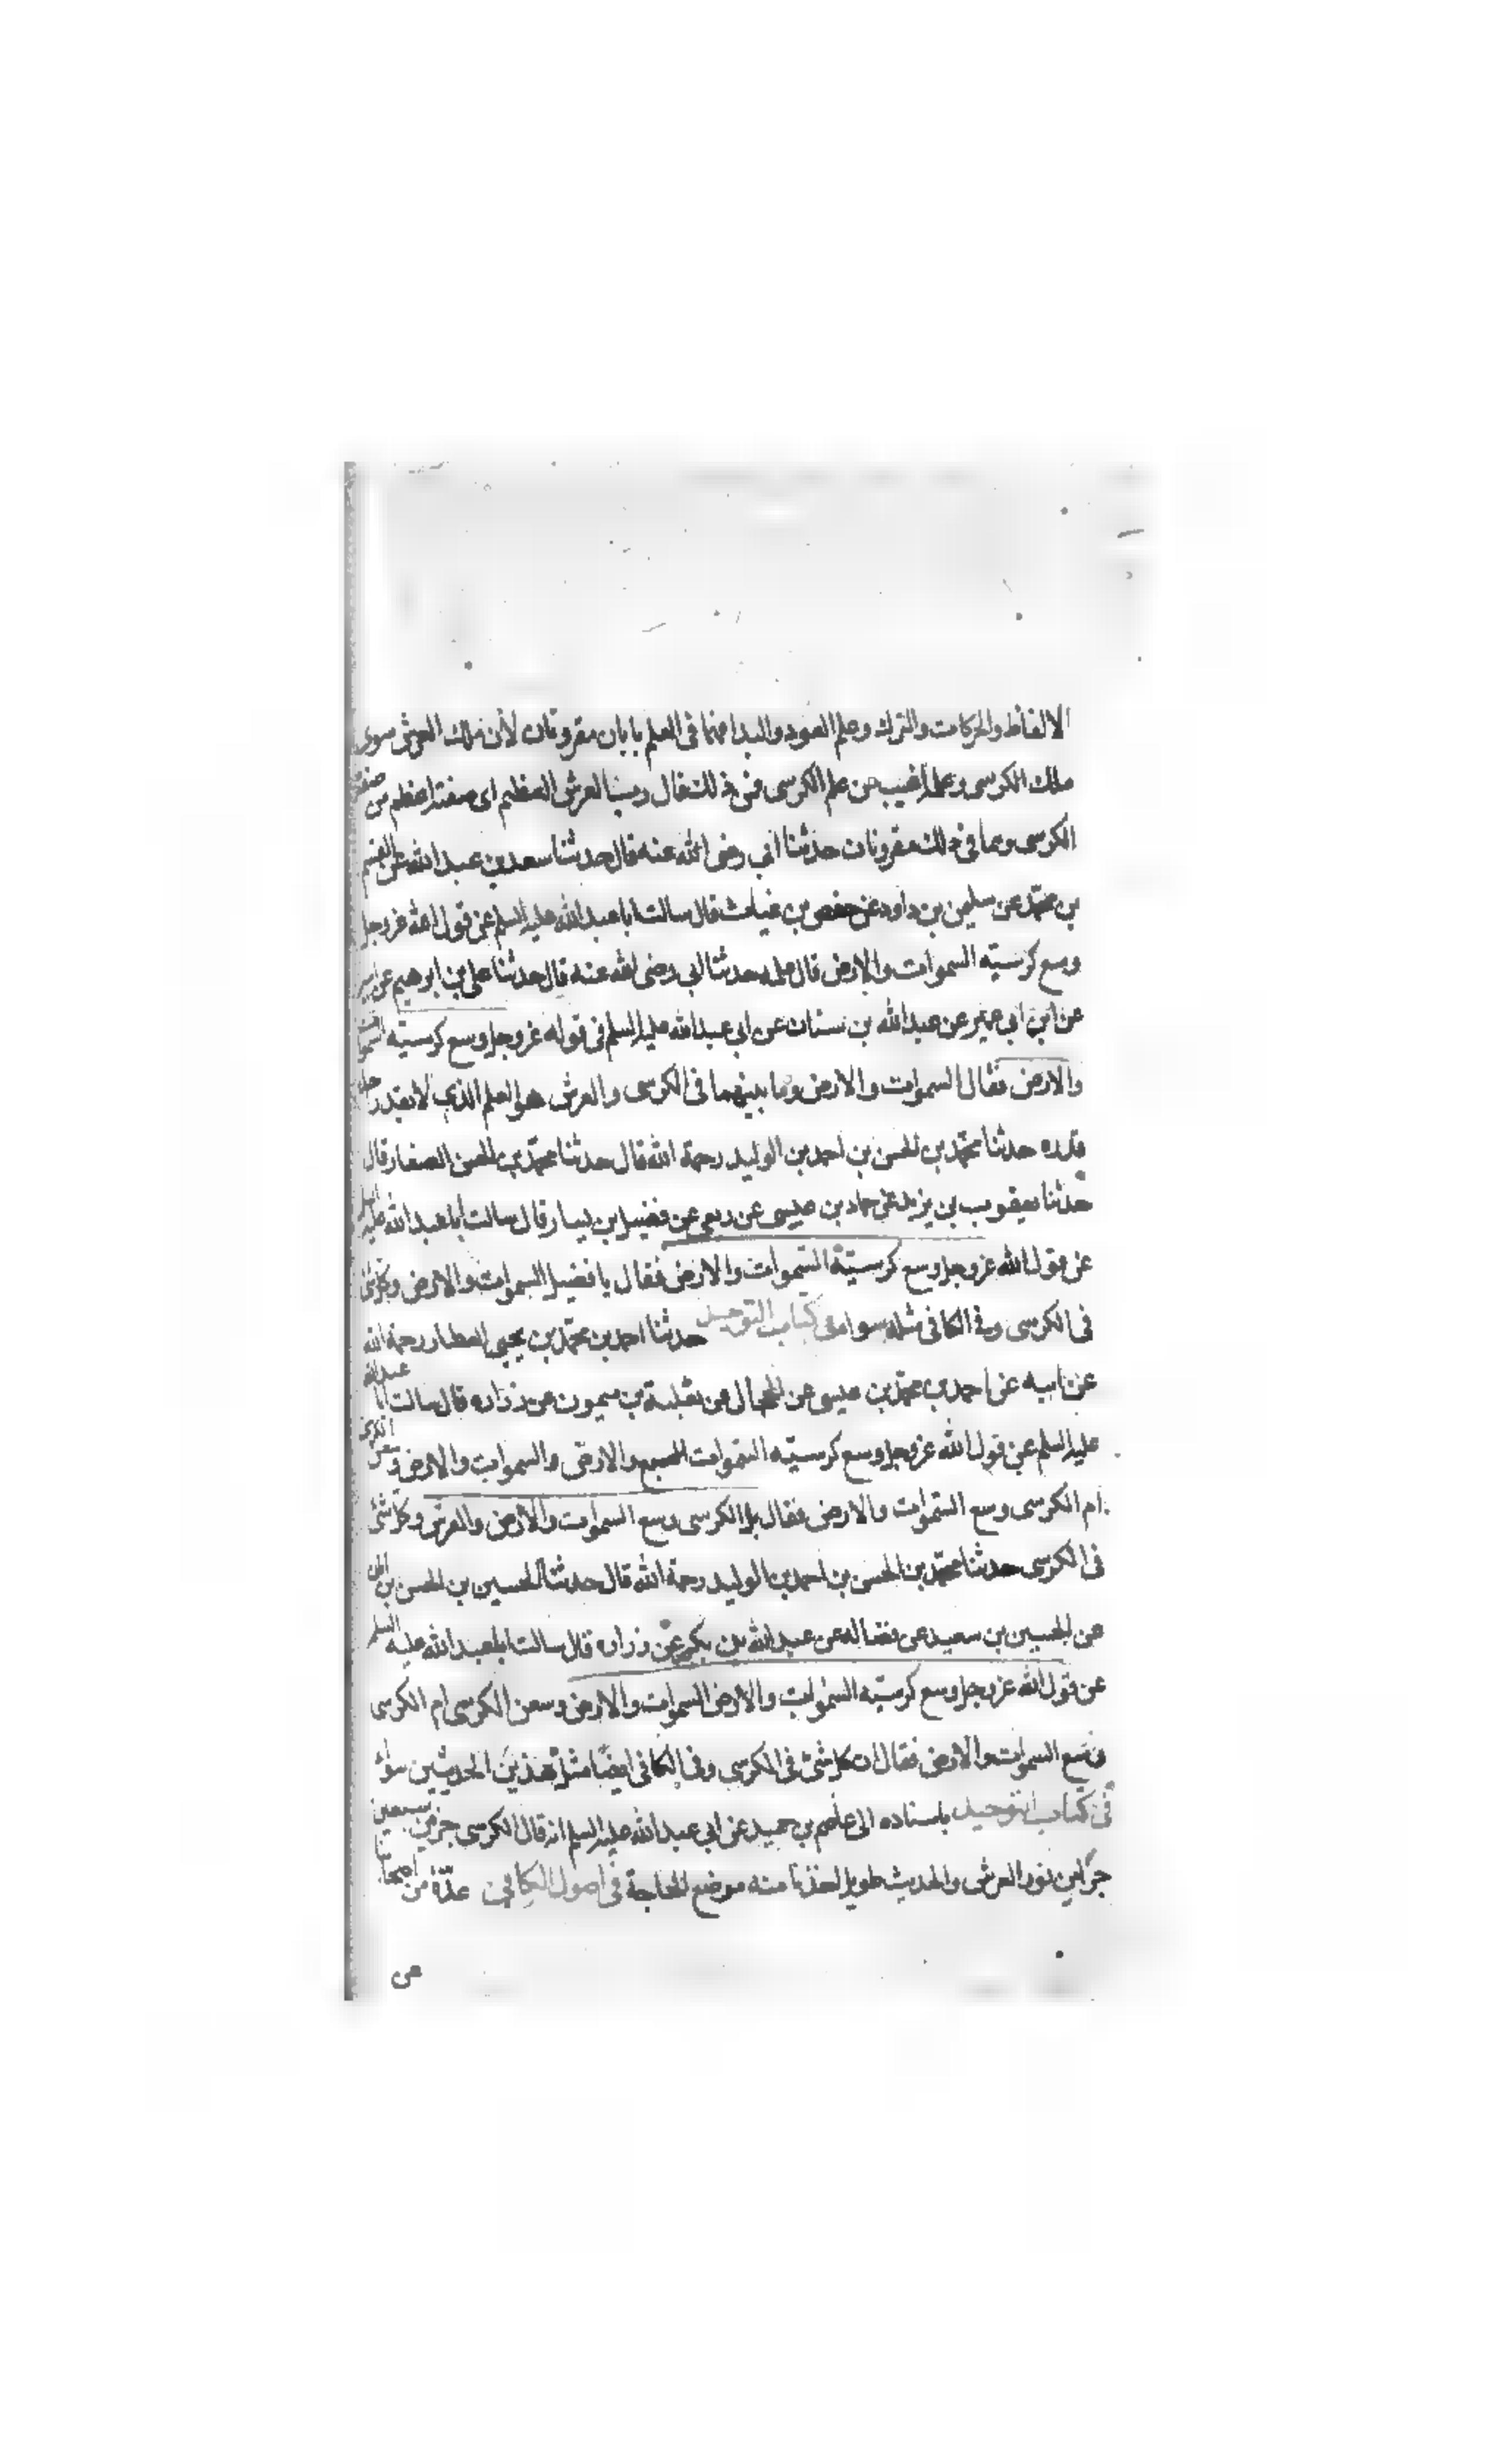 الالفاظ والحركات والترك وعلم العود والبدا فهما فى العلم بابان مقرونان لأن ملك العرش سوى
ملك الكرسى وعلمه اغيب من علم الكرسى فمن ذلك قال رب العرش العظيم اى صفته اعظم من صفة
الكرسى وهما فى ذلك مقرونان حدثنا ابى رضى الله عنه قال حدثنا سعد بن عبد الله عن القسم
بن محمّد عن سليمن بن داود عن حفص بن غياث قال سالت ابا عبد الله عليه السلم عن قول الله عز وجل
وسع كرسيّه السموات والارض قال علمه حدثنا ابى رضى الله عنه قال حدثنا على بن ابرهيم عن ابيه
عن ابن ابى عمير عن عبد الله بن سنان عن ابى عبد الله عليه السلم فى قوله عز وجل وسع كرسيّه السموات
والارض فقال السموات والارض وما بينهما فى الكرسى والعرش هو العلم الذى لا يقدر احد
قدره حدثنا محمّد بن الحسن بن احمد بن الوليد رحمة الله قال حدثنا محمّد بن الحسن الصفار قال
حدثنا يعقوب بن يزيد عن حماد بن عيسى عن ربعى عن فضيل بن يسار قال سالت ابا عبد الله عليه السلم
عن قول الله عز وجل وسع كرسيّه السّموات والارض فقال يا فضيل السموات والارض وكل شئ
فى الكرسى وفى الكافى مثله سواء فى كتاب التوحيد حدثنا احمد بن محمّد بن يحيى العطار رحمة الله
عن ابيه عن احمد بن محمّد بن عيسى عن الحجال عن ثعلبة بن ميمون عن زراره قال سالت ابا عبد الله
عليه السلم عن قول الله عز وجل وسع كرسيّه السّموات والارض السموات والارض وسعن الكرسى
ام الكرسى وسع السّموات والارض فقال بل الكرسى وسع السموات والارض والعرش وكل شئ
فى الكرسى حدثنا محمّد بن الحسن بن احمد بن الوليد رحمة الله قال حدثنا الحسين بن الحسن بن ابان
عن الحسين بن سعيد عن فضاله عن عبد الله بن بكير عن زراره قال سالت ابا عبد الله عليه السلم
عن قول الله عز وجل وسع كرسيّه السّموات والارض السموات والارض وسعن الكرسى ام الكرسى
وسع السموات والارض فقال ان كل شئ فى الكرسى وفى الكافى ايضا مثل هذين الحديثين سواء
فى كتاب التوحيد باسناده الى عاصم بن حميد عن ابى عبد الله عليه السلم انه قال الكرسى جزء من سبعين
جزءا من نور العرش والحديث طويل اخذنا منه موضع الحاجة فى اصول الكافى عدّة من اصحابنا
عن